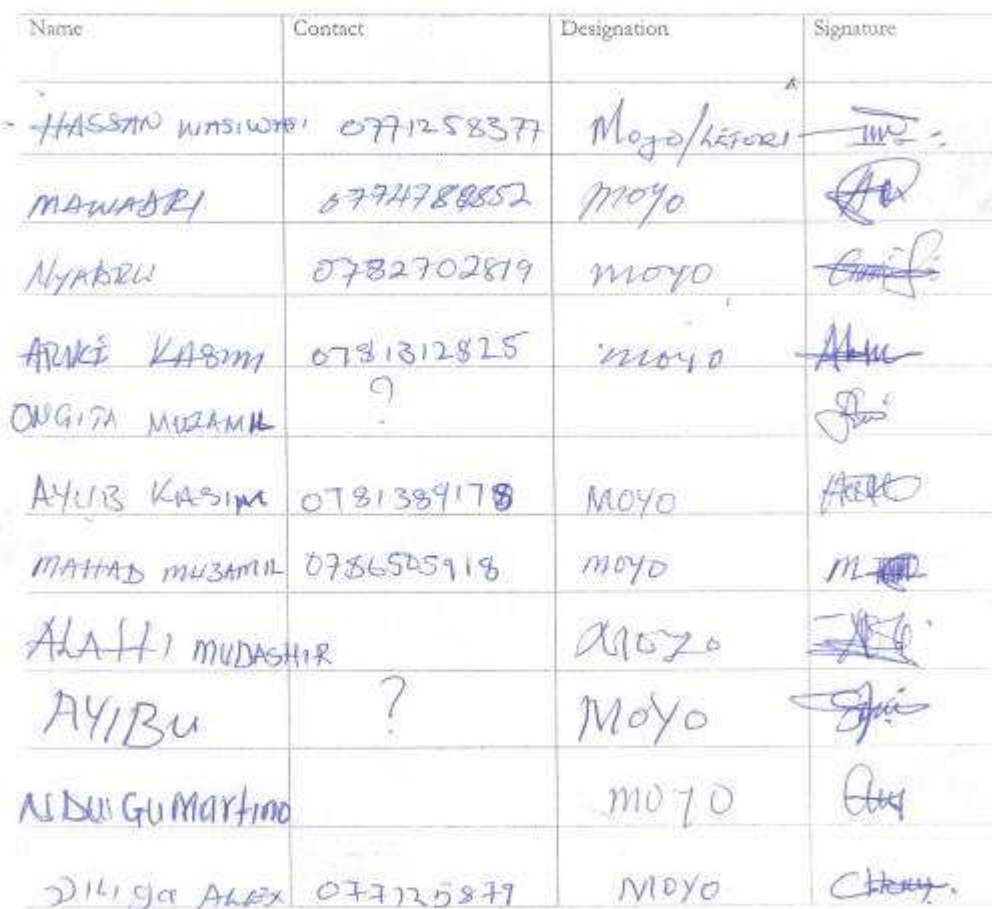 Name Contact Designation Signature
HASSAN WASIWASI 0771258377 Moyo/LEFORI
MAWADRI 0774789852 moyo
NYADRU 0782702819 moyo
ARIKE KASIM 0781312825 moyo
?
ONGITA MUZAMIL
AYUB KASIM 0781389178 MOYO
MAHAD MUZAMIL 0786505918 moyo
ALAHI MUDASHIR moyo
AYIBU ? MOYO
Martino moyo
ALEX MOYO